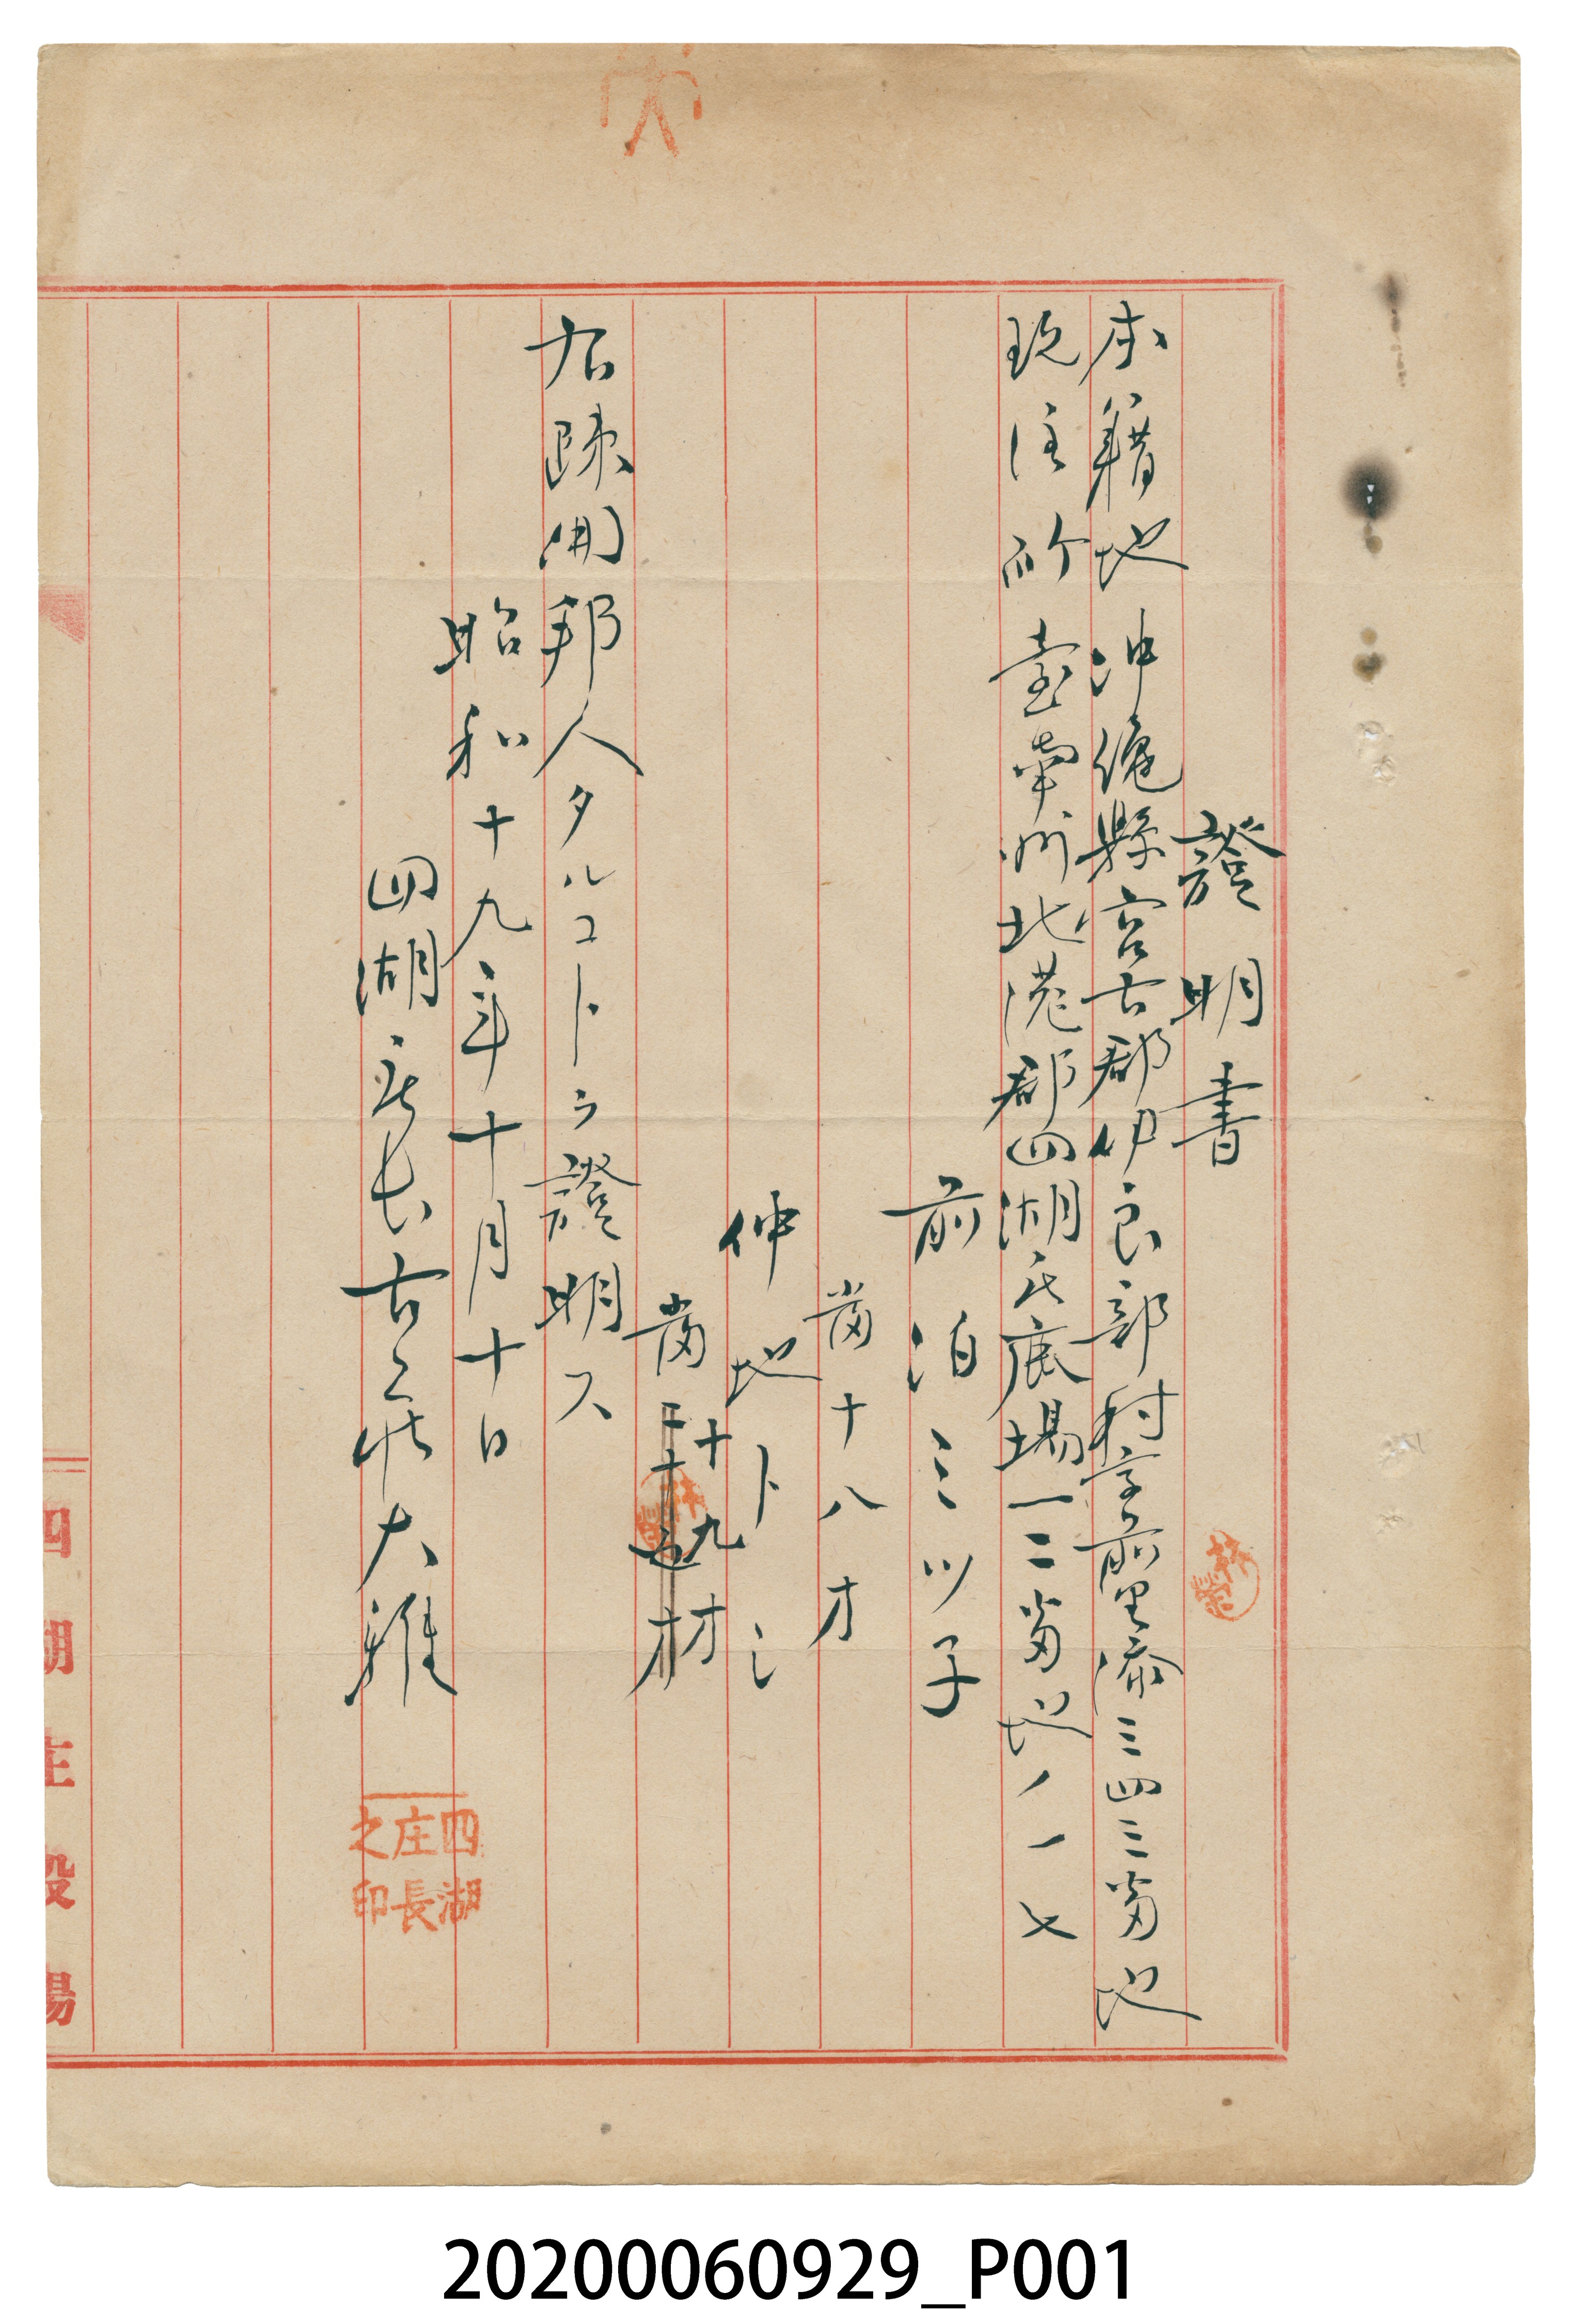 證明書
本籍地 沖縄縣宮古郡伊良部村字前里添三四三番地
現住所 臺南州北港郡四湖庄鹿場一二番地ノ一七
前泊ミツ子
當十八才
仲地トミ
當二十 才
十九才
右疎開邦人タルコトヲ證明ス
昭和十九年十月十日
四湖庄長古 大雅
四湖庄長之印
四湖庄役場
20200060929_P001